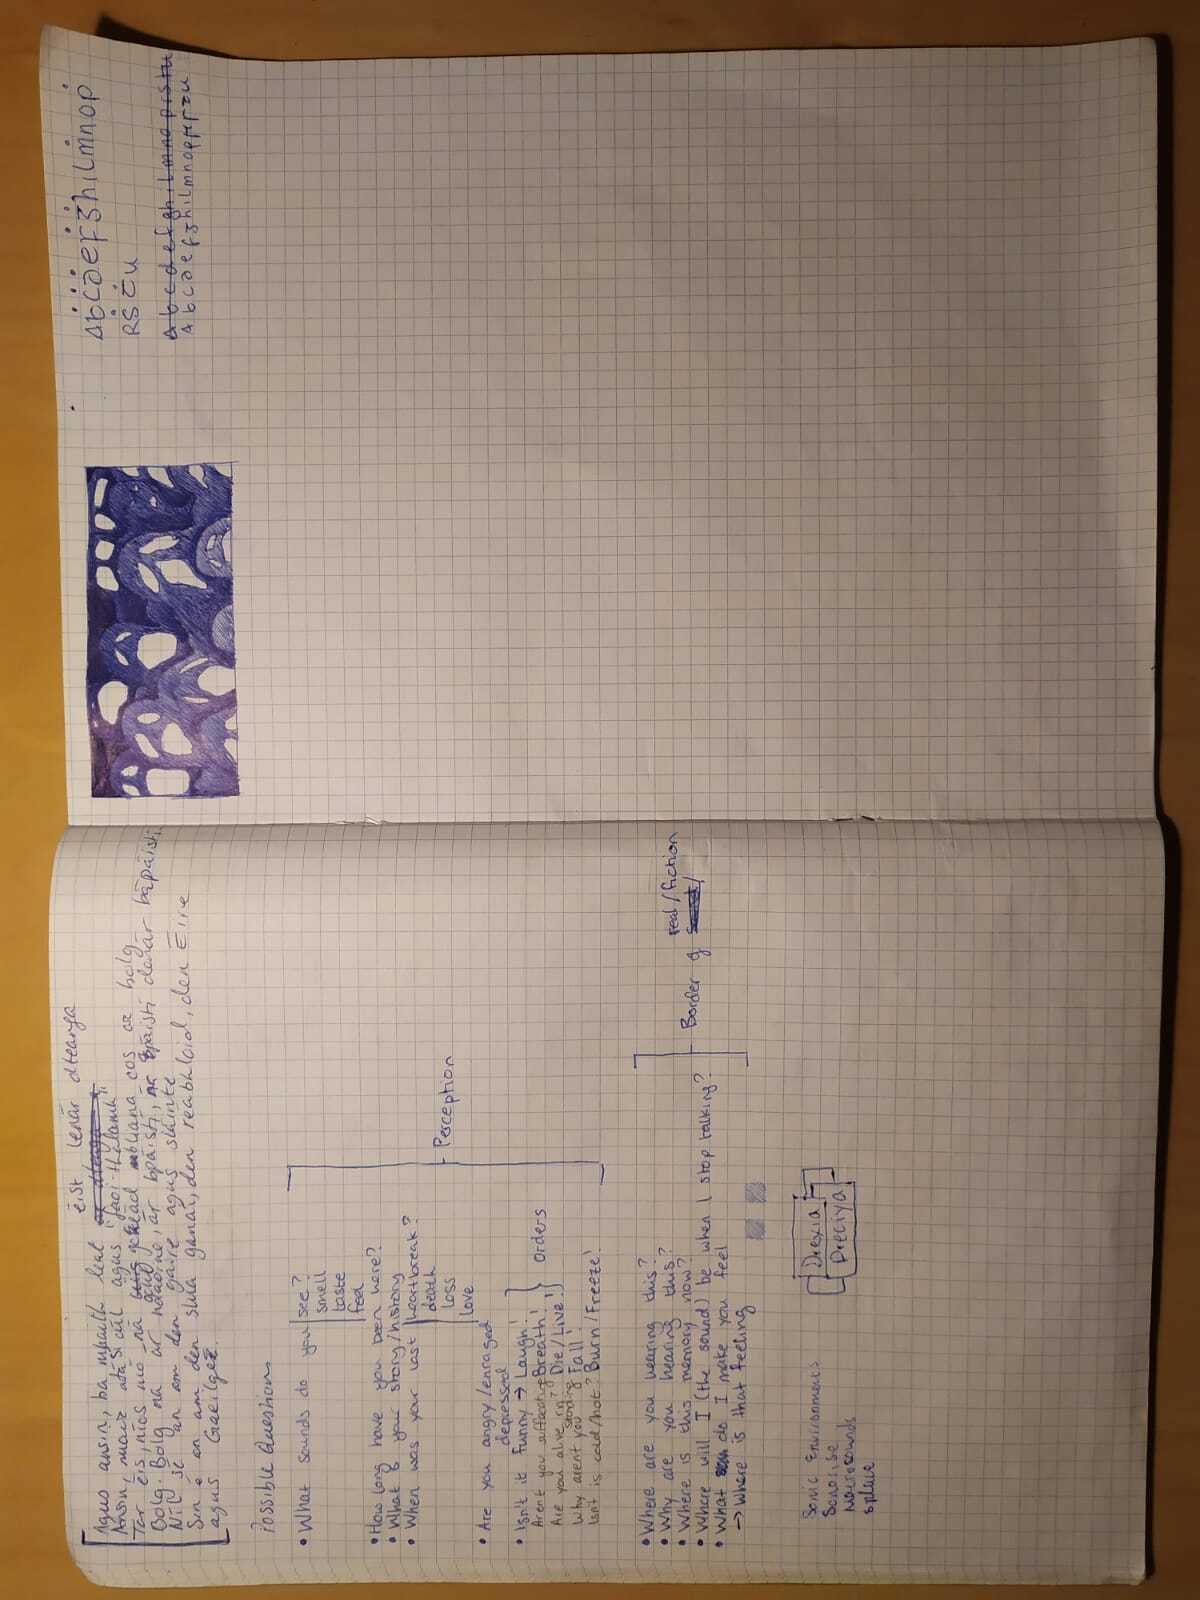 éist lenár dteanga
Agus ansin, ba mhaith leat
Ansin, nuair atá sí cúl agus "faoi thalamh"
Tar éis, níos mó ná céad mbliana cos ar bolg
Bolg. Bolg na ár ndaoine, ár bpáistí, na bpáistí denár bpáistí
Níl sé an am den gáire agus sláinte
Sin é an am den slua ganáí, den réabhlóid, den Éire
agus Gaeilge.
Possible Questions
• What sounds do you see?
smell
taste
feel
• How long have you been here?
• What is your story/history
• When was your last heartbreak?
death
loss
love
Perception
• Are you angry/enraged
depressed
• Isn't it funny → Laugh!
Aren't you suffocating Breath!
Orders
Are you alive rn? Die/Live!
Why arent you standing Fall!
Isn't is cold/hot? Burn/Freeze!
• Where are you hearing this?
• Why are you hearing this?
• Where is this memory now?
• Where will I (the sound) be when I stop talking?
• What do I make you feel
→ Where is that feeling
real/fiction
Border of sound/
Sonic Environments
Sonorise
Macrosounds
splice
Drexia
Dreciya
A ḃ ċ ḋ e ḟ ġ h i l ṁ n o ṗ
R Ṡ Ṫ U
A b c d e f g h i l m n o p r s t u
A b c d e f g h i l m n o p r s t u